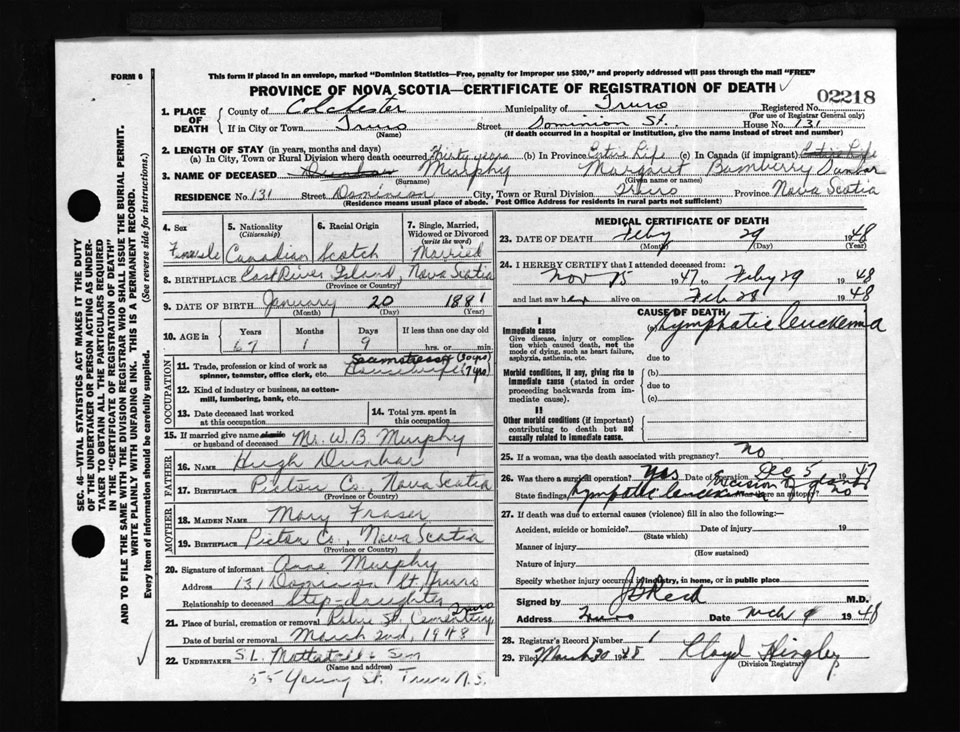 This form if placed in an envelope, marked "Dominion Statistics—Free, penalty for improper use $300," and properly addressed will pass through the mail "FREE"
FORM 6
PROVINCE OF NOVA SCOTIA—CERTIFICATE OF REGISTRATION OF DEATH
02218
1. PLACE OF DEATH
County of Colchester Municipality of Truro Registered No.
(For use of Registrar General only)
If in City or Town Truro Street Dominion St. House No. 131
(Name) (If death occurred in a hospital or institution, give the name instead of street and number)
2. LENGTH OF STAY (in years, months and days)
(a) In City, Town or Rural Division where death occurred Thirty years (b) In Province Entire Life (c) In Canada (if immigrant) Entire Life
3. NAME OF DECEASED Dunbar Murphy Margaret Dunbar
(Surname) (Given name or names)
RESIDENCE No. 131 Street Dominion City, Town or Rural Division Truro Province Nova Scotia
(Residence means usual place of abode. Post Office Address for residents in rural parts not sufficient)
4. Sex Female
5. Nationality (Citizenship) Canadian
6. Racial Origin Scotch
7. Single, Married, Widowed or Divorced (write the word) Married
8. BIRTHPLACE East River Island, Nova Scotia
(Province or Country)
9. DATE OF BIRTH January 20 1881
(Month) (Day) (Year)
10. AGE in Years Months Days If less than one day
67 1 9 hrs. or min.
OCCUPATION
11. Trade, profession or kind of work as spinner, teamster, office clerk, etc. Seamstress Housewife
12. Kind of industry or business, as cotton-mill, lumbering, bank, etc.
13. Date deceased last worked at this occupation
14. Total yrs. spent in this occupation
15. If married give name or husband of deceased Mr. W. B. Murphy
FATHER
16. NAME Hugh Dunbar
17. BIRTHPLACE Pictou Co., Nova Scotia
(Province or Country)
MOTHER
18. MAIDEN NAME Mary Fraser
19. BIRTHPLACE Pictou Co., Nova Scotia
(Province or Country)
20. Signature of informant Anne Murphy
Address 131 Dominion St. Truro
Relationship to deceased Step-daughter
21. Place of burial, cremation or removal Robie St. Cemetery Truro
Date of burial or removal March 2nd, 1948
22. UNDERTAKER S.L. Mattatall & Son
(Name and address)
55 Young St. Truro N.S.
MEDICAL CERTIFICATE OF DEATH
23. DATE OF DEATH Feby 29 1948
(Month) (Day) (Year)
24. I HEREBY CERTIFY that I attended deceased from:
Nov 25 1947 to Feby 29 1948
and last saw her alive on Feb 28 1948
CAUSE OF DEATH
I
Immediate cause
Give disease, injury or complication which caused death, not the mode of dying, such as heart failure, asphyxia, asthenia, etc.
(a) Lymphatic leuckemia
due to
Morbid conditions, if any, giving rise to immediate cause (stated in order proceeding backwards from immediate cause).
(b)
due to
(c)
II
Other morbid conditions (if important) contributing to death but not causally related to immediate cause.
25. If a woman, was the death associated with pregnancy? no
26. Was there a surgical operation? Yes Date of operation Dec 5 1947
State findings Lymphatic leuckemia Excision of gland Was there an autopsy? no
27. If death was due to external causes (violence) fill in also the following:—
Accident, suicide or homicide? Date of injury 19
(State which)
Manner of injury
(How sustained)
Nature of injury
Specify whether injury occurred in industry, in home, or in public place
Signed by M.D.
Address Truro Date Mch 9 1948
28. Registrar's Record Number 1
29. Filed March 30 1948 Lloyd Hingley
(Division Registrar)
SEC. 46—VITAL STATISTICS ACT MAKES IT THE DUTY
OF THE UNDERTAKER OR PERSON ACTING AS UNDER-
TAKER TO OBTAIN ALL THE PARTICULARS REQUIRED
IN THE "CERTIFICATE OF REGISTRATION OF DEATH"
AND TO FILE THE SAME WITH THE DIVISION REGISTRAR WHO SHALL ISSUE THE BURIAL PERMIT.
WRITE PLAINLY WITH UNFADING INK. THIS IS A PERMANENT RECORD.
Every item of information should be carefully supplied. (See reverse side for instructions.)